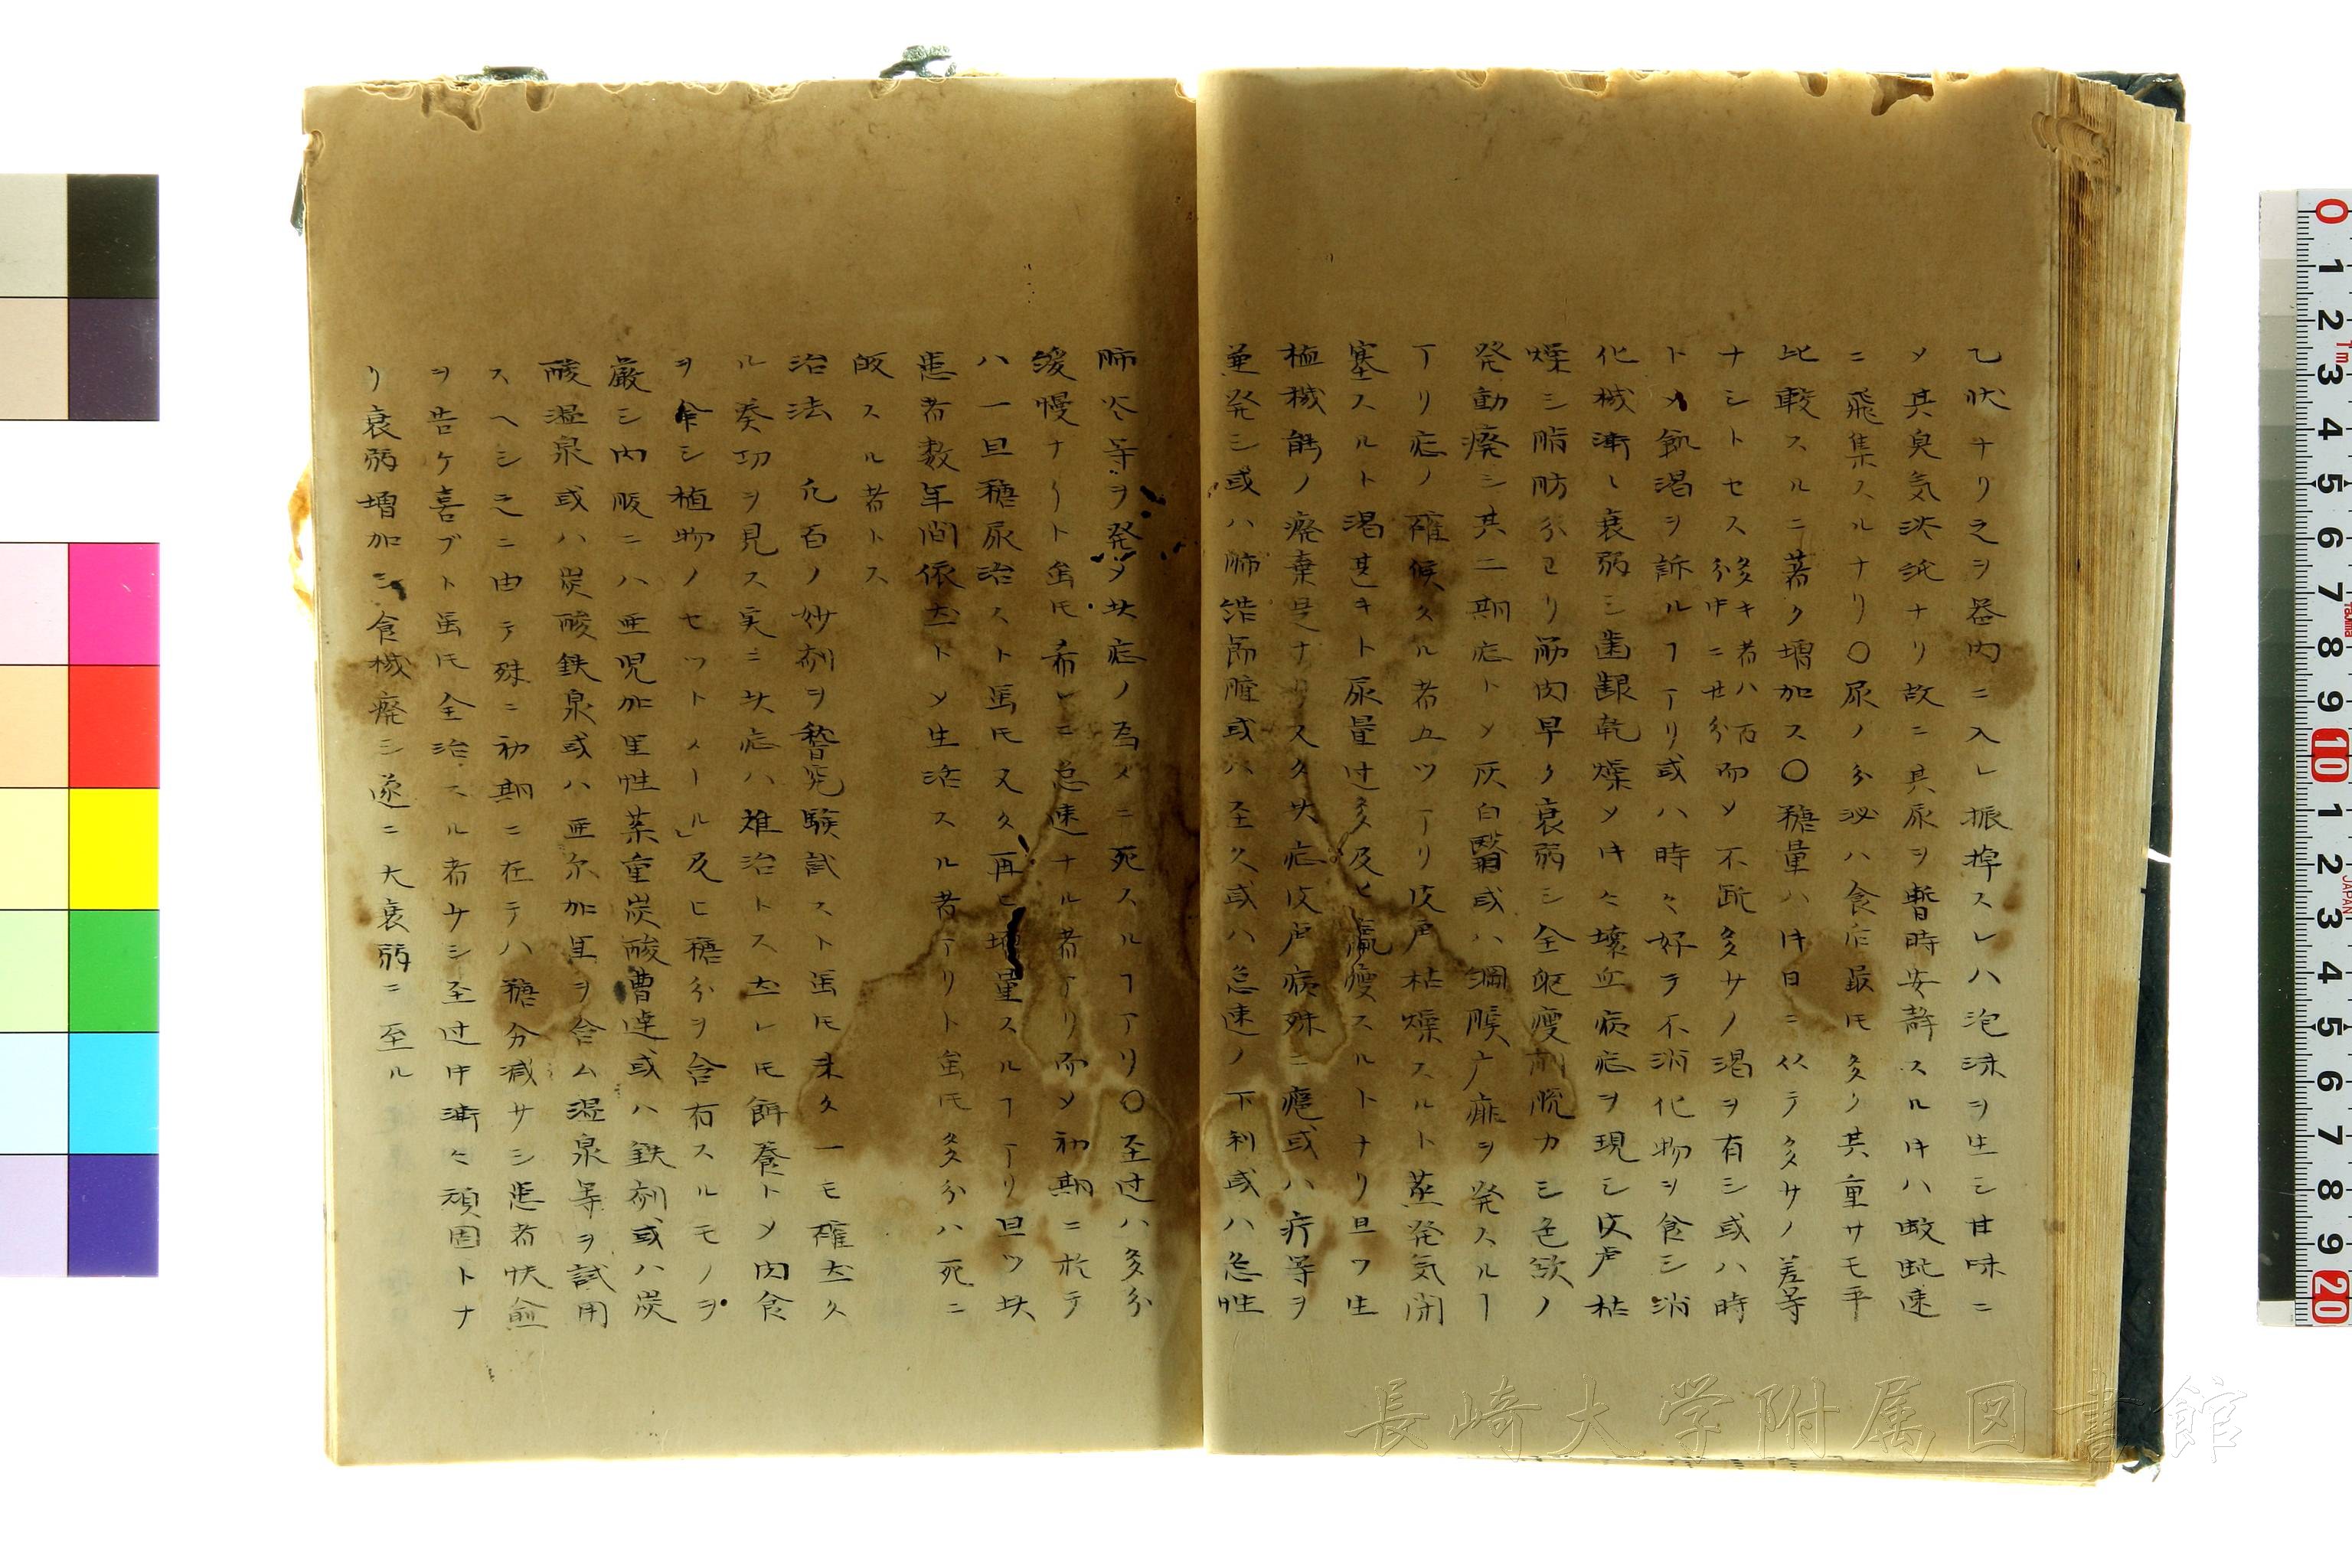 乙状ナリ之ヲ器内ニ入レ振掉スレハ泡沫ヲ生シ甘味ニ
〆其臭気淡泊ナリ故ニ其尿ヲ暫時安静スル㕝ハ蚊虻速
ニ飛集スルナリ〇尿ノ分泌ハ食后最𪜈多ク其重サモ平
比較スルニ著ク増加ス〇糖量ハ𪜈日ニ仍テ多サノ差等
ナシトセス 多キ者ハ百
分中ニ廿分 而〆不断多サノ渇ヲ有シ或ハ時
ト〆飢渇ヲ訴ルヿアリ或ハ時々好テ不消化物ヲ食シ消
化機漸ク衰弱シ歯齦乾燥〆𪜈々壊血病症ヲ現シ皮膚枯
燥シ脂肪分ヨリ筋肉早ク衰弱シ全躯痩削脱力シ色欲ノ
発動癈シ其二期症ト〆灰白翳或ハ網膜广痱ヲ発スルヿ
アリ症ノ確候タル者五ツアリ皮膚枯燥スルト蒸発気閉
塞スルト渇甚キト尿量过多及ヒ羸痩スルトナリ旦ツ生
殖機能ノ癈棄是ナリ又久此症皮膚病殊ニ瘡或ハ疔等ヲ
兼発シ或ハ肺結節腫或ハ至久或ハ急速ノ下利或ハ急性
肺炎等ヲ発〆此症ノ為メニ死スルヿアリ〇至过ハ多分
緩慢ナリト虽𪜈希レニ急速ナル者アリ而〆初期ニ於テ
ハ一旦糖尿治スト虽𪜈又久再ヒ増量スルヿアリ旦ツ此
患者数年間依然ト〆生活スル者アリト虽𪜈多分ハ死ニ
皈スル者トス
治法 凢百ノ妙剤ヲ撿究験試スト虽𪜈未タ一モ確然タ
ル奏功ヲ見ス実ニ此症ハ難治トス然レ𪜈餌養ト〆肉食
ヲ命シ植物ノセツトメール」及ヒ糖分ヲ含有スルモノヲ
厳シ内服ニハ亜児加里性薬重炭酸曹達或ハ鉄剤或ハ炭
酸温泉或ハ炭酸鉄泉或ハ亜尓加里ヲ含ム温泉等ヲ試用
スヘシ之ニ由テ殊ニ初期ニ在テハ糖分減サシ患者快愈
ヲ告ケ喜ブト虽𪜈全治スル者サシ至过中漸々頑固トナ
リ衰弱増加シ食機癈シ遂ニ大衰弱ニ至ル
長崎大学附属図書館